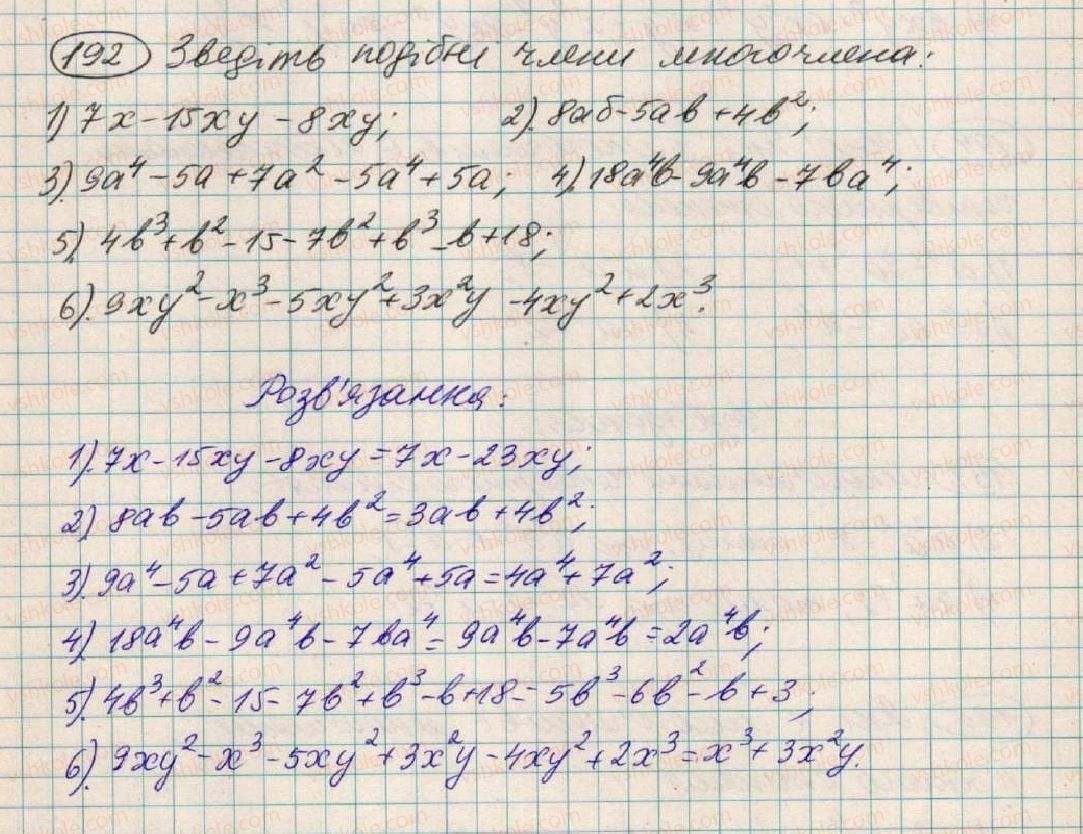 192 Зведіть подібні члени многочлена:
1) 7x-15xy-8xy; 2). 8aб-5ab+4b²;
3). 9a⁴-5a+7a²-5a⁴+5a; 4). 18a⁴b-9a⁴b-7ba⁴;
5). 4b³+b²-15-7b²+b³-b+18;
6). 9xy²-x³-5xy²+3x²y-4xy²+2x³.
Розв'язання:
1). 7x-15xy-8xy=7x-23xy;
2) 8ab-5ab+4b²=3ab+4b²;
3). 9a⁴-5a+7a²-5a⁴+5a=4a⁴+7a²;
4). 18a⁴b-9a⁴b-7ba⁴=9a⁴b-7a⁴b=2a⁴b;
5). 4b³+b²-15-7b²+b³-b+18=5b³-6b²-b+3;
6). 9xy²-x³-5xy²+3x²y-4xy²+2x³=x³+3x²y.
vshkole.com